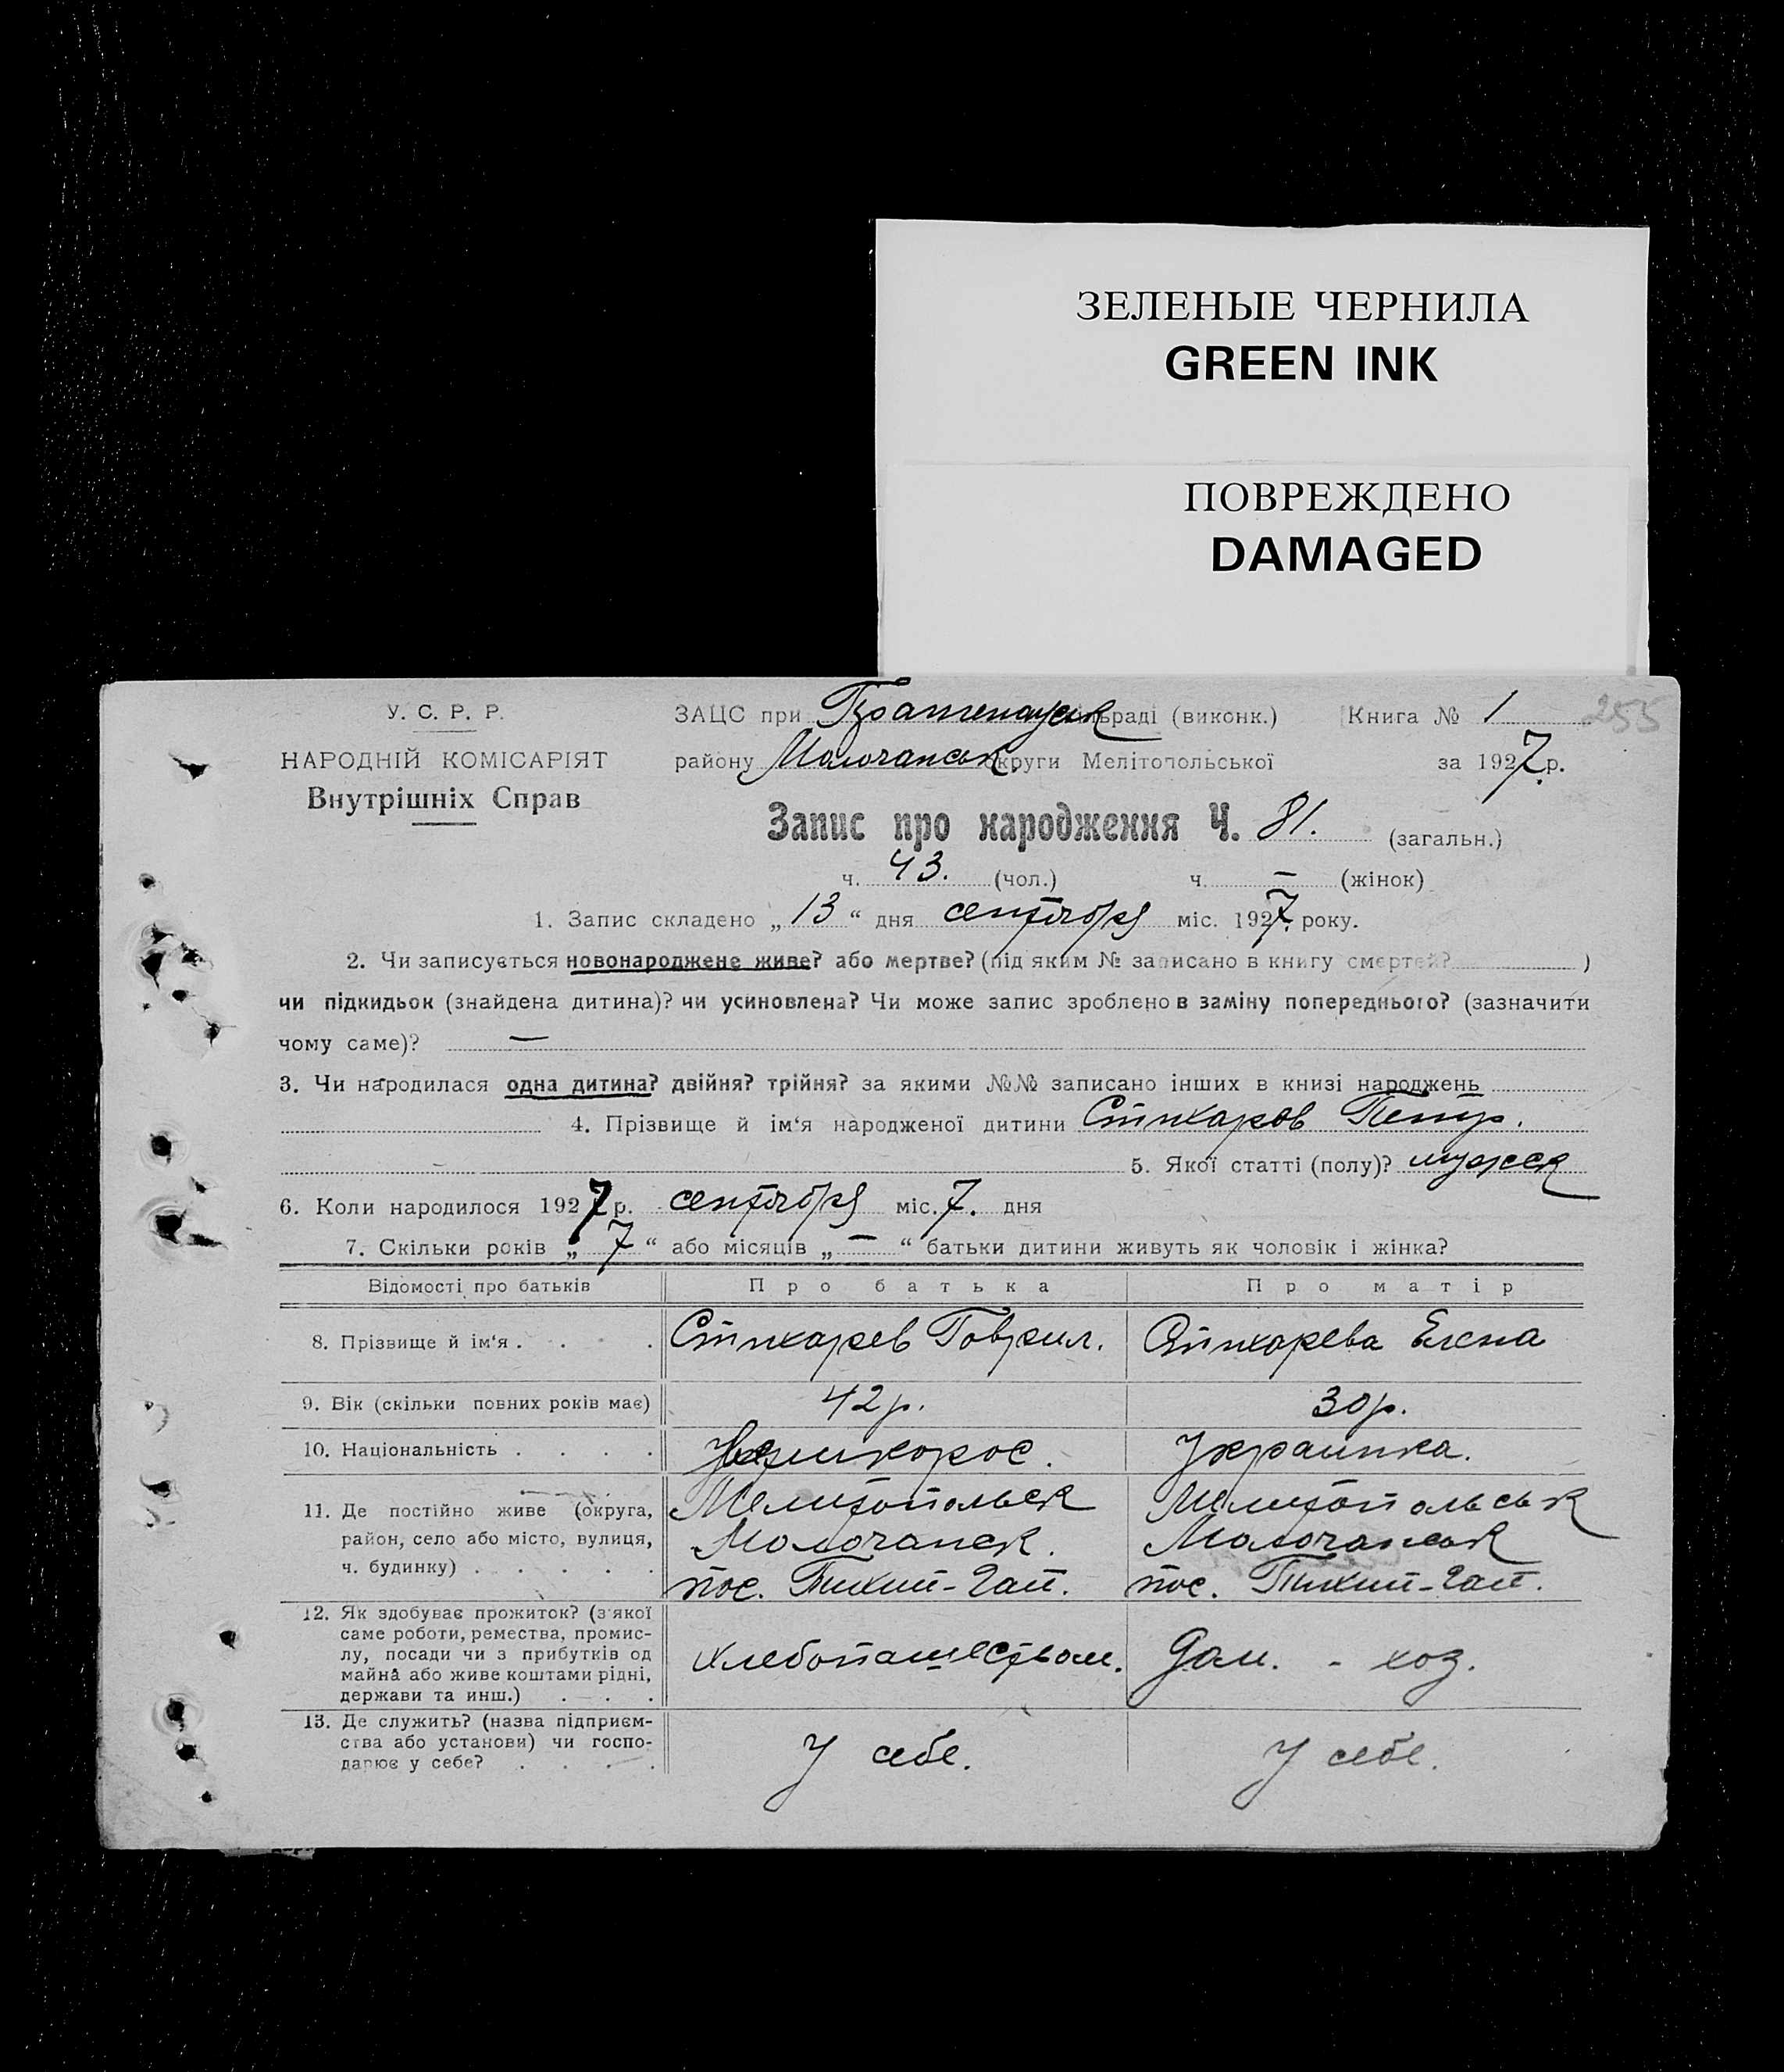 ЗЕЛЕНЫЕ ЧЕРНИЛА
GREEN INK
ПОВРЕЖДЕНО
DAMAGED
255
У. С. Р. Р.
НАРОДНІЙ КОМІСАРІЯТ
Внутрішніх Справ
ЗАЦС при сільраді (виконк.) Книга № 1
району Молочанськ округи Мелітопольської за 1927 р.
Запис про народження Ч. 81. (загальн.)
ч. 43. (чол.) ч. — (жінок)
1. Запис складено „ 13 “ дня сентября міс. 1927. року.
2. Чи записується новонароджене живе? або мертве? (під яким № записано в книгу смертей? )
чи підкидьок (знайдена дитина)? чи усиновлена? Чи може запис зроблено в заміну попереднього? (зазначити
чому саме)? —
3. Чи народилася одна дитина? двійня? трійня? за якими №№ записано інших в книзі народжень
4. Прізвище й ім‘я народженої дитини Петр.
5. Якої статті (полу)? мужск
6. Коли народилося 1927 р. сентября міс. 7. дня
7. Скільки років „ 7 “ або місяців „ — “ батьки дитини живуть як чоловік і жінка?
Відомості про батьків Про батька Про матір
8. Прізвище й ім‘я . . . Гаврил. Елена
9. Вік (скільки повних років має) 42 р. 30 р.
10. Національність . . . . Великорос. Украинка.
11. Де постійно живе (округа, Мелитопольск Мелитопольськ
район, село або місто, вулиця, Молочанск. Молочанськ
ч. будинку) . . . . . пос. Тихий-Гай. пос. Тихий-Гай.
12. Як здобуває прожиток? (з якої
саме роботи, ремества, промис-
лу, посади чи з прибутків од хлебопашеством. Дом. - хоз.
майна або живе коштами рідні,
держави та инш.) . . .
13. Де служить? (назва підприєм-
ства або установи) чи госпо- У себе. У себе.
дарює у себе? . . . .